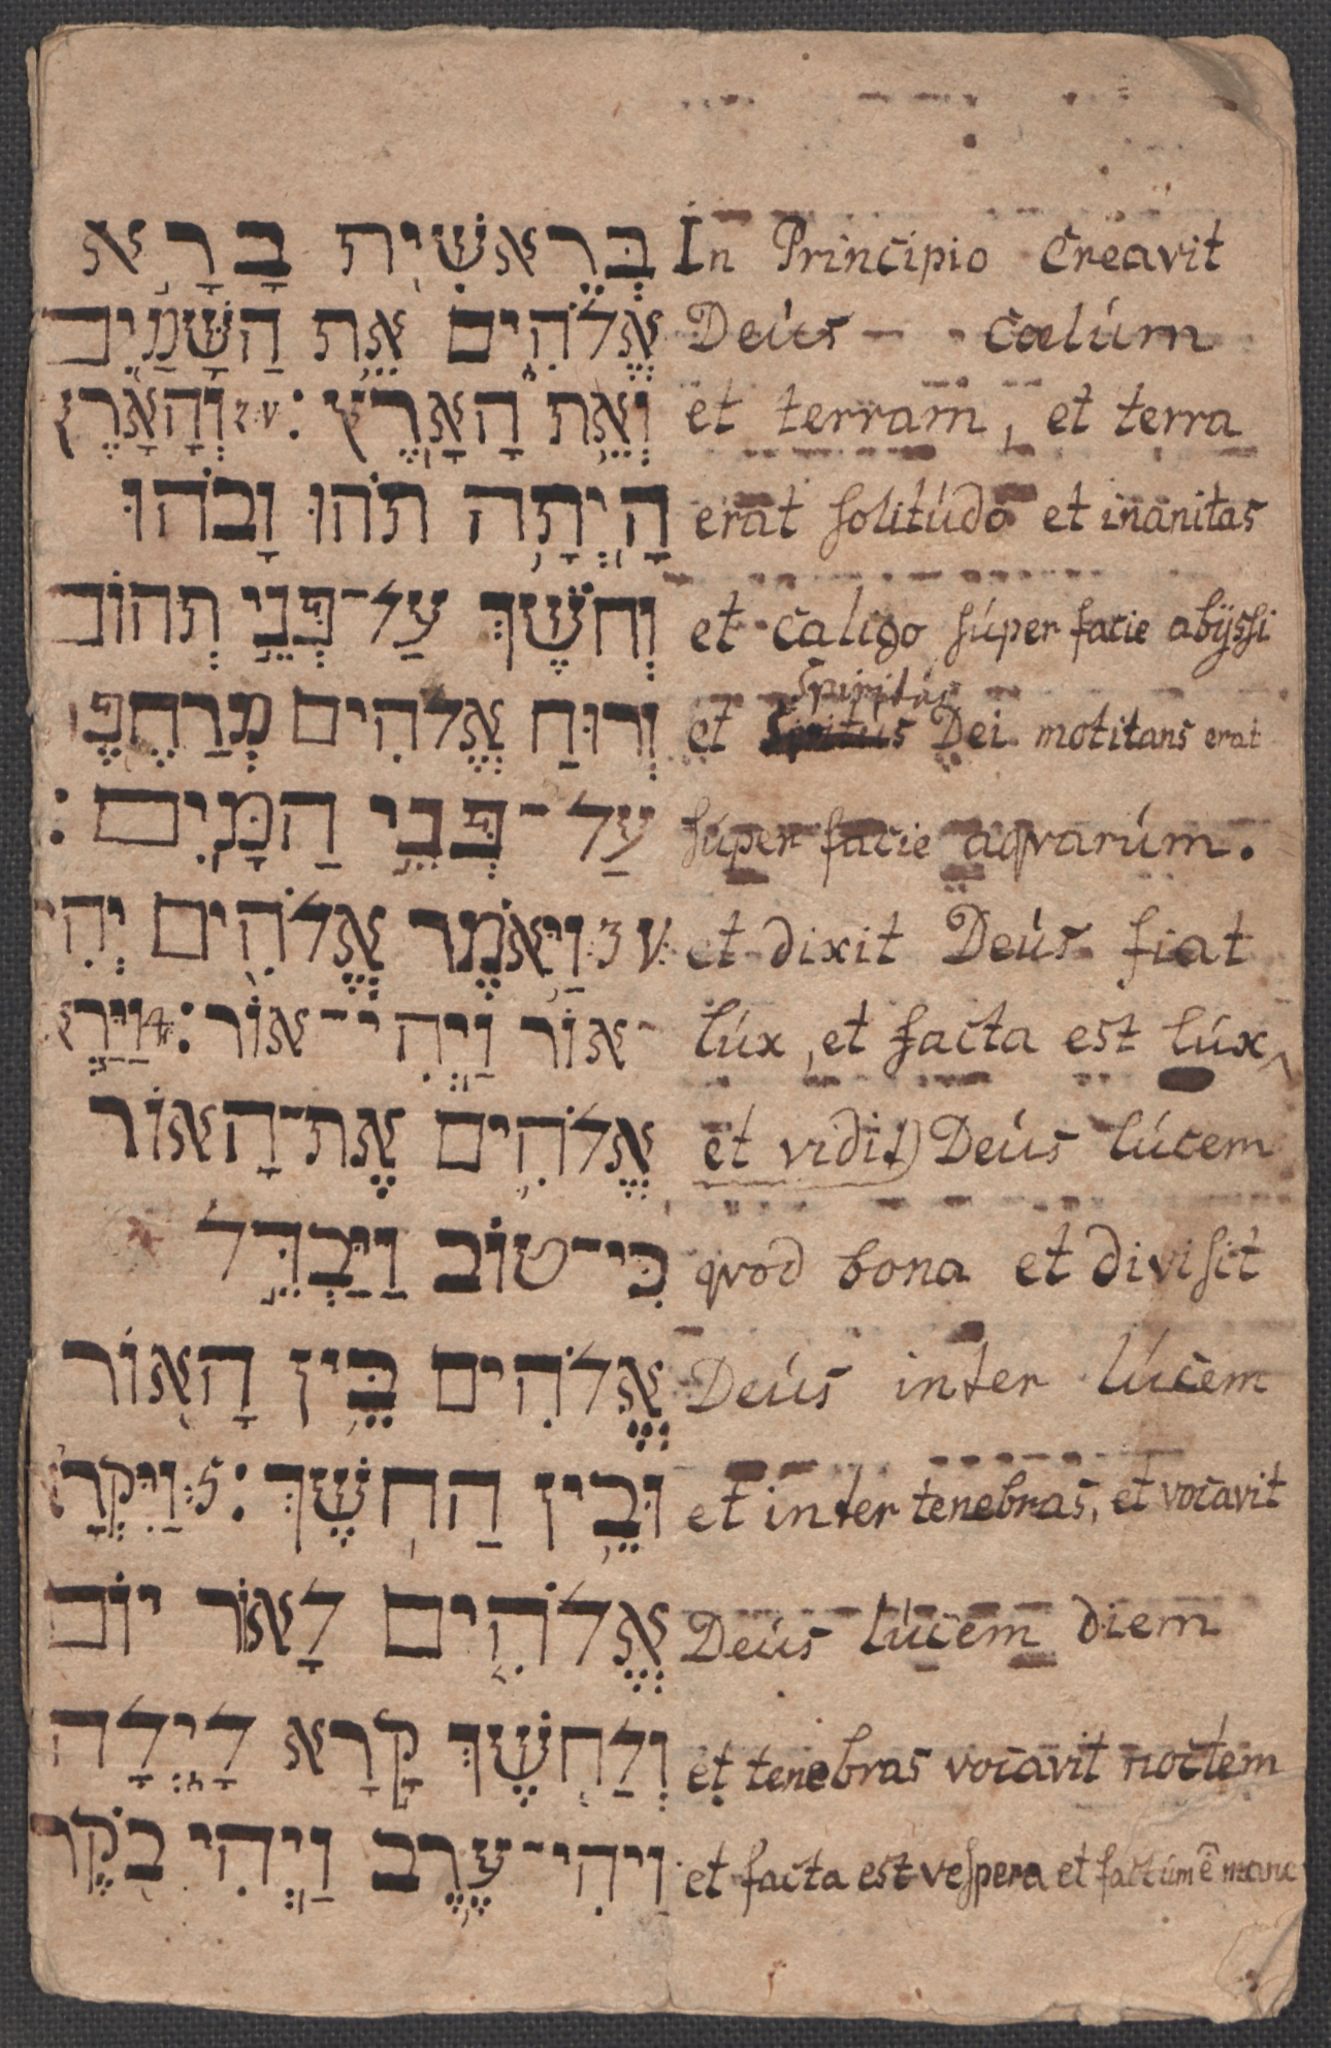 בְּרֵאשִׁית בָּרָא In Principio Creavit
אֱלֹהִים אֵת הַשָּׁמַיִם Deús cœlúm
וְאֵת הָאָרֶץ׃ 2.v וְהָאָרֶץ et terram, et terra
הָיְתָה תֹהוּ וָבֹהוּ erat ſolitúdo et inanitas
וְחֹשֶׁךְ עַל־פְּנֵי תְהוֹם et caligo ſúper facie abÿſſi
Spiritús
וְרוּחַ אֱלֹהִים מְרַחֶפֶ et Spiritus Dei motitans erat
עַל־פְּנֵי הַמָּיִם׃ ſúper facie aqvarúm.
3 V. וַיֹּאמֶר אֱלֹהִים יְהִי et dixit Deús fiat
־אוֹר וַיְהִי־אוֹר׃ 4 וַיַּרְא lúx, et facta est lúx,
אֱלֹהִים אֶת־הָאוֹר et vidit) Deús lúcem
כִּי־טוֹב וַיַּבְדֵּל qvod bona et diviſit
אֱלֹהִים בֵּין הָאוֹר Deús inter lúcem
וּבֵין הַחֹשֶׁךְ׃ 5 וַיִּקְרָא et inter tenebras, et vocavit
אֱלֹהִים לָאוֹר יוֹם Deús lúcem diem
וְלַחֹשֶׁךְ קָרָא לָיְלָה et tenebras vocavit noctem
וַיְהִי־עֶרֶב וַיְהִי בֹקֶר et facta est veſpera et factúm ê mane